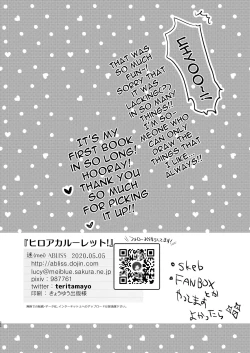 UHYOO~!!
THAT WAS
SO MUCH
FUN~!
SORRY THAT
IT WAS
LACKING(?)
IN SO MANY
THINGS!!
I'M SO
MEOONE WHO
CAN ONLY
DRAW THE
THINGS THAT
I LIKE
ALWAYS!!
IT'S MY
FIRST BOOK
IN SO LONG!
HOORAY!
THANK YOU
SO MUCH
FOR PICKING
IT UP!!
『ヒロアカルーレット!』
ABLISS 2020.05.05
http://abliss.dojin.com
lucy@meiblue.sakura.ne.jp
pixiv : 987761
twitter : teritamayo
印刷 : きょうゆう出版様
* skeb
* FANBOX
とか
やってます
よかったら